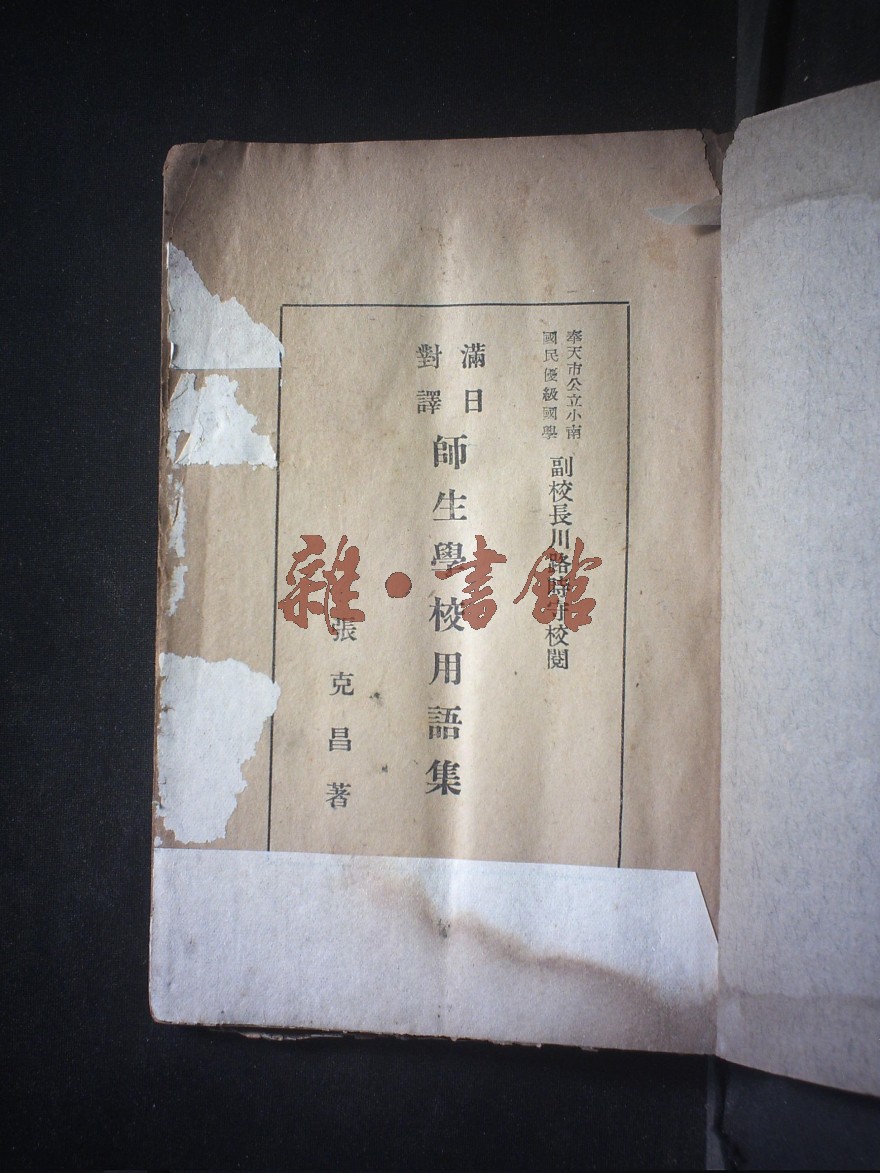 奉天市公立小南
國民優級國學
副校長川路時守校閱
滿日
對譯
師生學校用語集
張克昌著
雜·書館